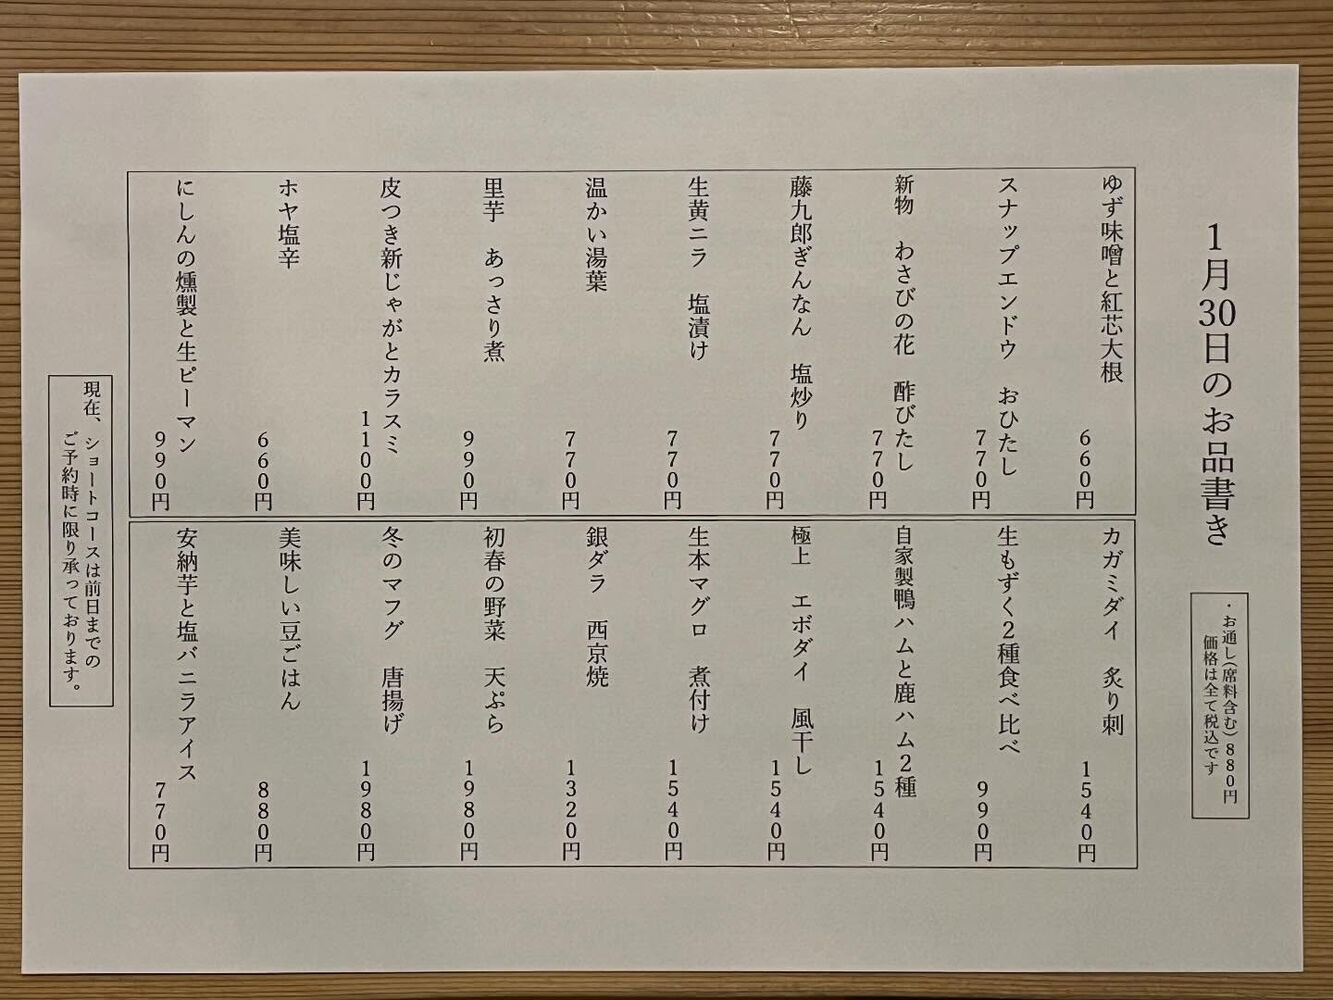 1月30日のお品書き
・お通し(席料含む)880円
価格は全て税込です
ゆず味噌と紅芯大根
660円
スナップエンドウ おひたし
770円
新物 わさびの花 酢びたし
770円
藤九郎ぎんなん 塩炒り
770円
生黄ニラ 塩漬け
770円
温かい湯葉
770円
里芋 あっさり煮
990円
皮つき新じゃがとカラスミ
1100円
ホヤ塩辛
660円
にしんの燻製と生ピーマン
990円
カガミダイ 炙り刺
1540円
生もずく2種食べ比べ
990円
自家製鴨ハムと鹿ハム2種
1540円
極上 エボダイ 風干し
1540円
生本マグロ 煮付け
1540円
銀ダラ 西京焼
1320円
初春の野菜 天ぷら
1980円
冬のマフグ 唐揚げ
1980円
美味しい豆ごはん
880円
安納芋と塩バニラアイス
770円
現在、ショートコースは前日までの
ご予約時に限り承っております。